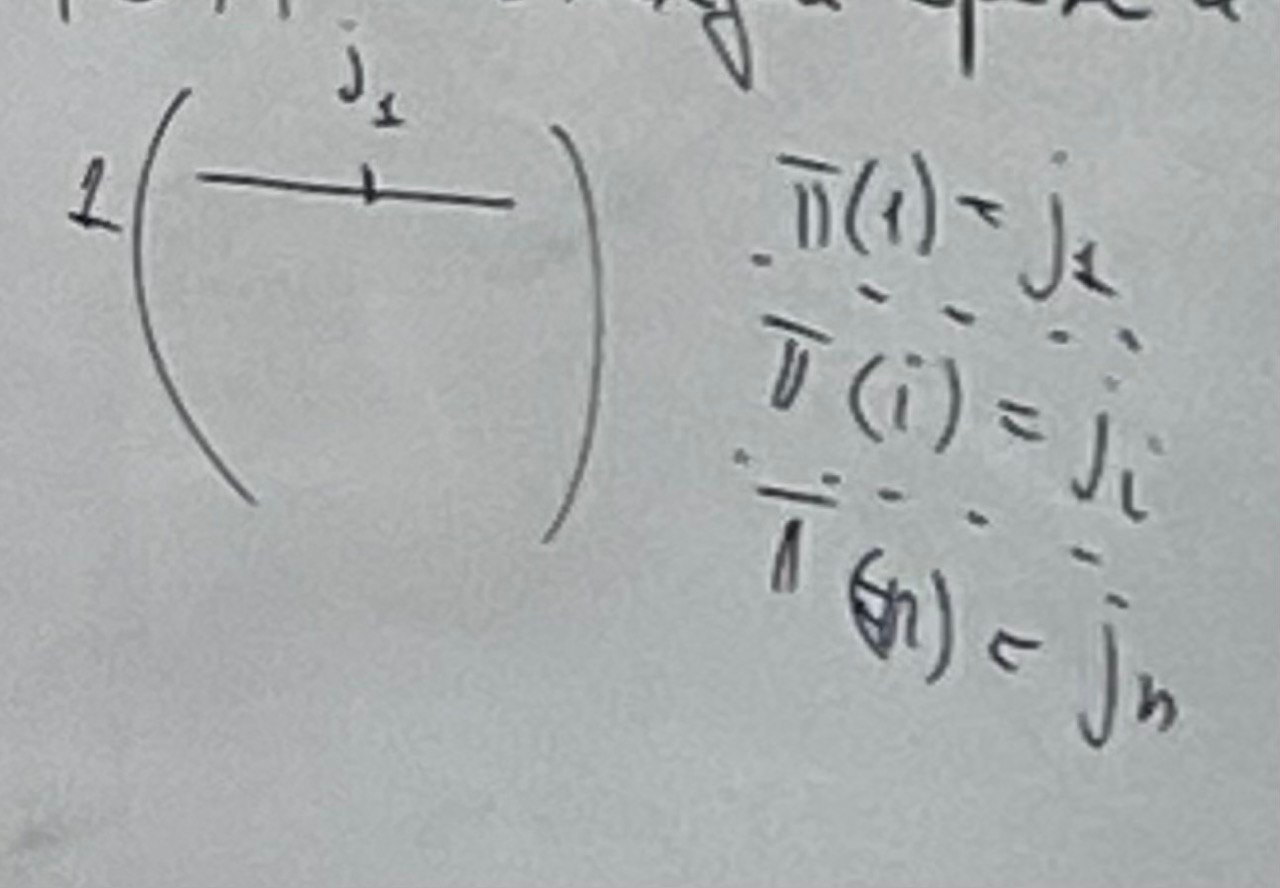 j₁
1
π(1) = j₁
. . . . .
π(i) = jᵢ
. . . . .
π(n) = jₙ